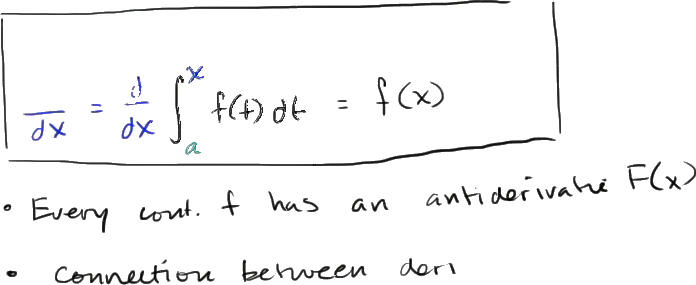 /dx = d/dx ∫_a^x f(t) dt = f(x)
• Every cont. f has an antiderivative F(x)
• Connection between deri